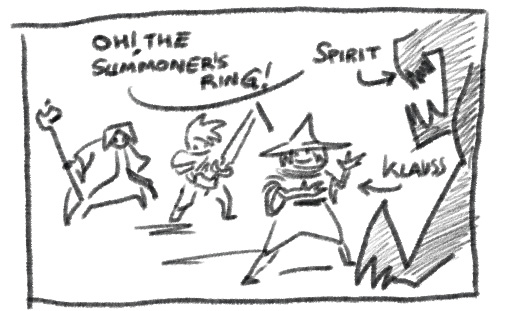 OH! THE
SUMMONER'S
RING!
SPIRIT
KLAUSS